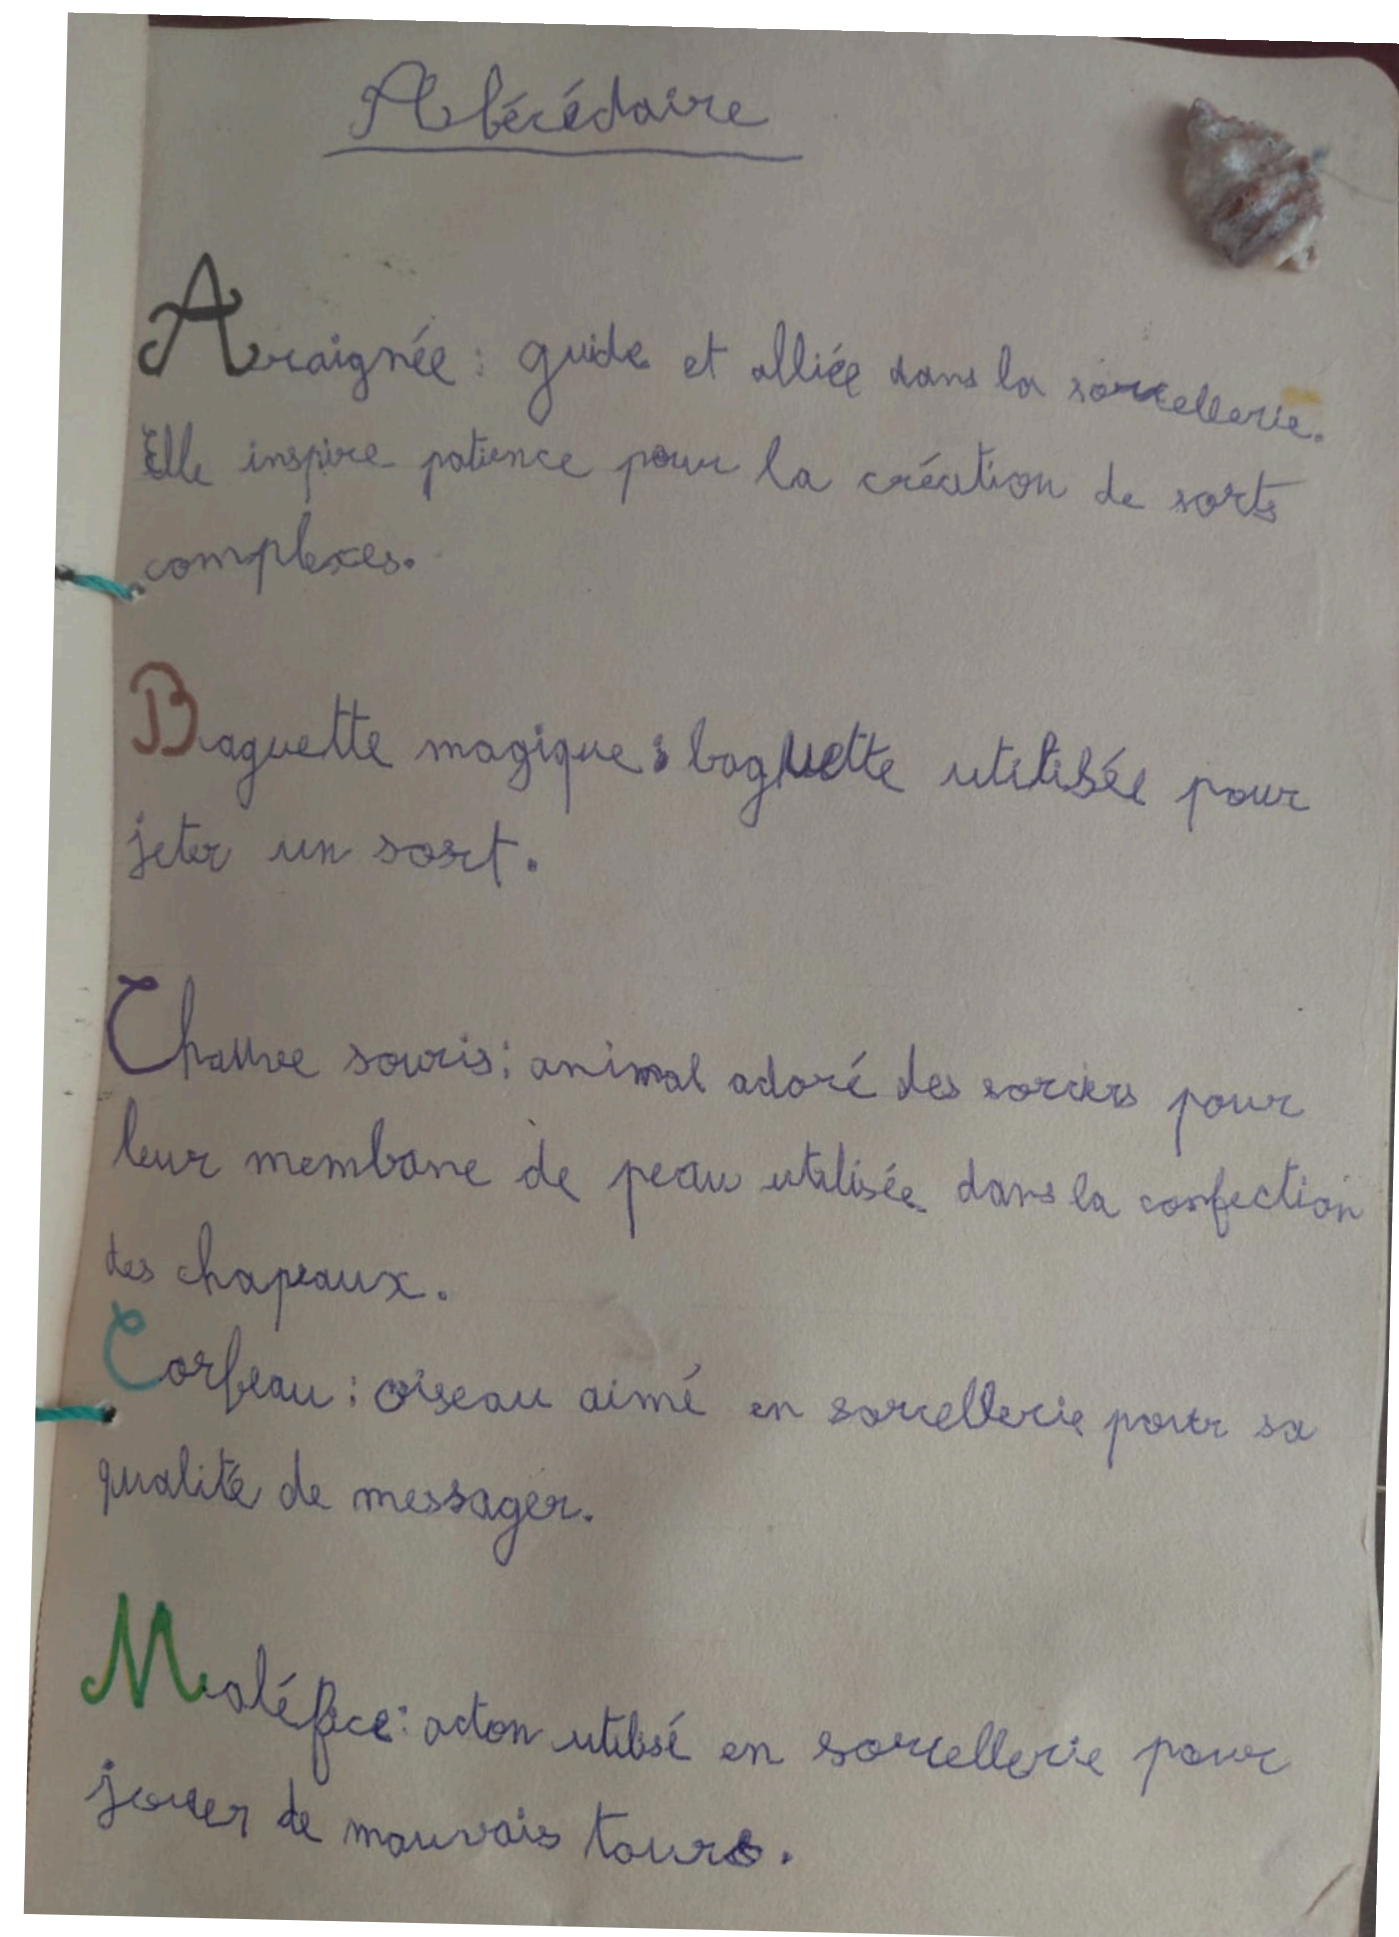 Abécédaire
Araignée : guide et alliée dans la sorcellerie.
Elle inspire patience pour la création de sorts
complexes.
Baguette magique : baguette utilisée pour
jeter un sort.
Chauve souris : animal adoré des sorciers pour
leur membane de peau utilisée dans la confection
des chapeaux.
Corbeau : oiseau aimé en sorcellerie pour sa
qualité de messager.
Maléfice : acton utilisé en sorcellerie pour
jouer de mauvais tours.